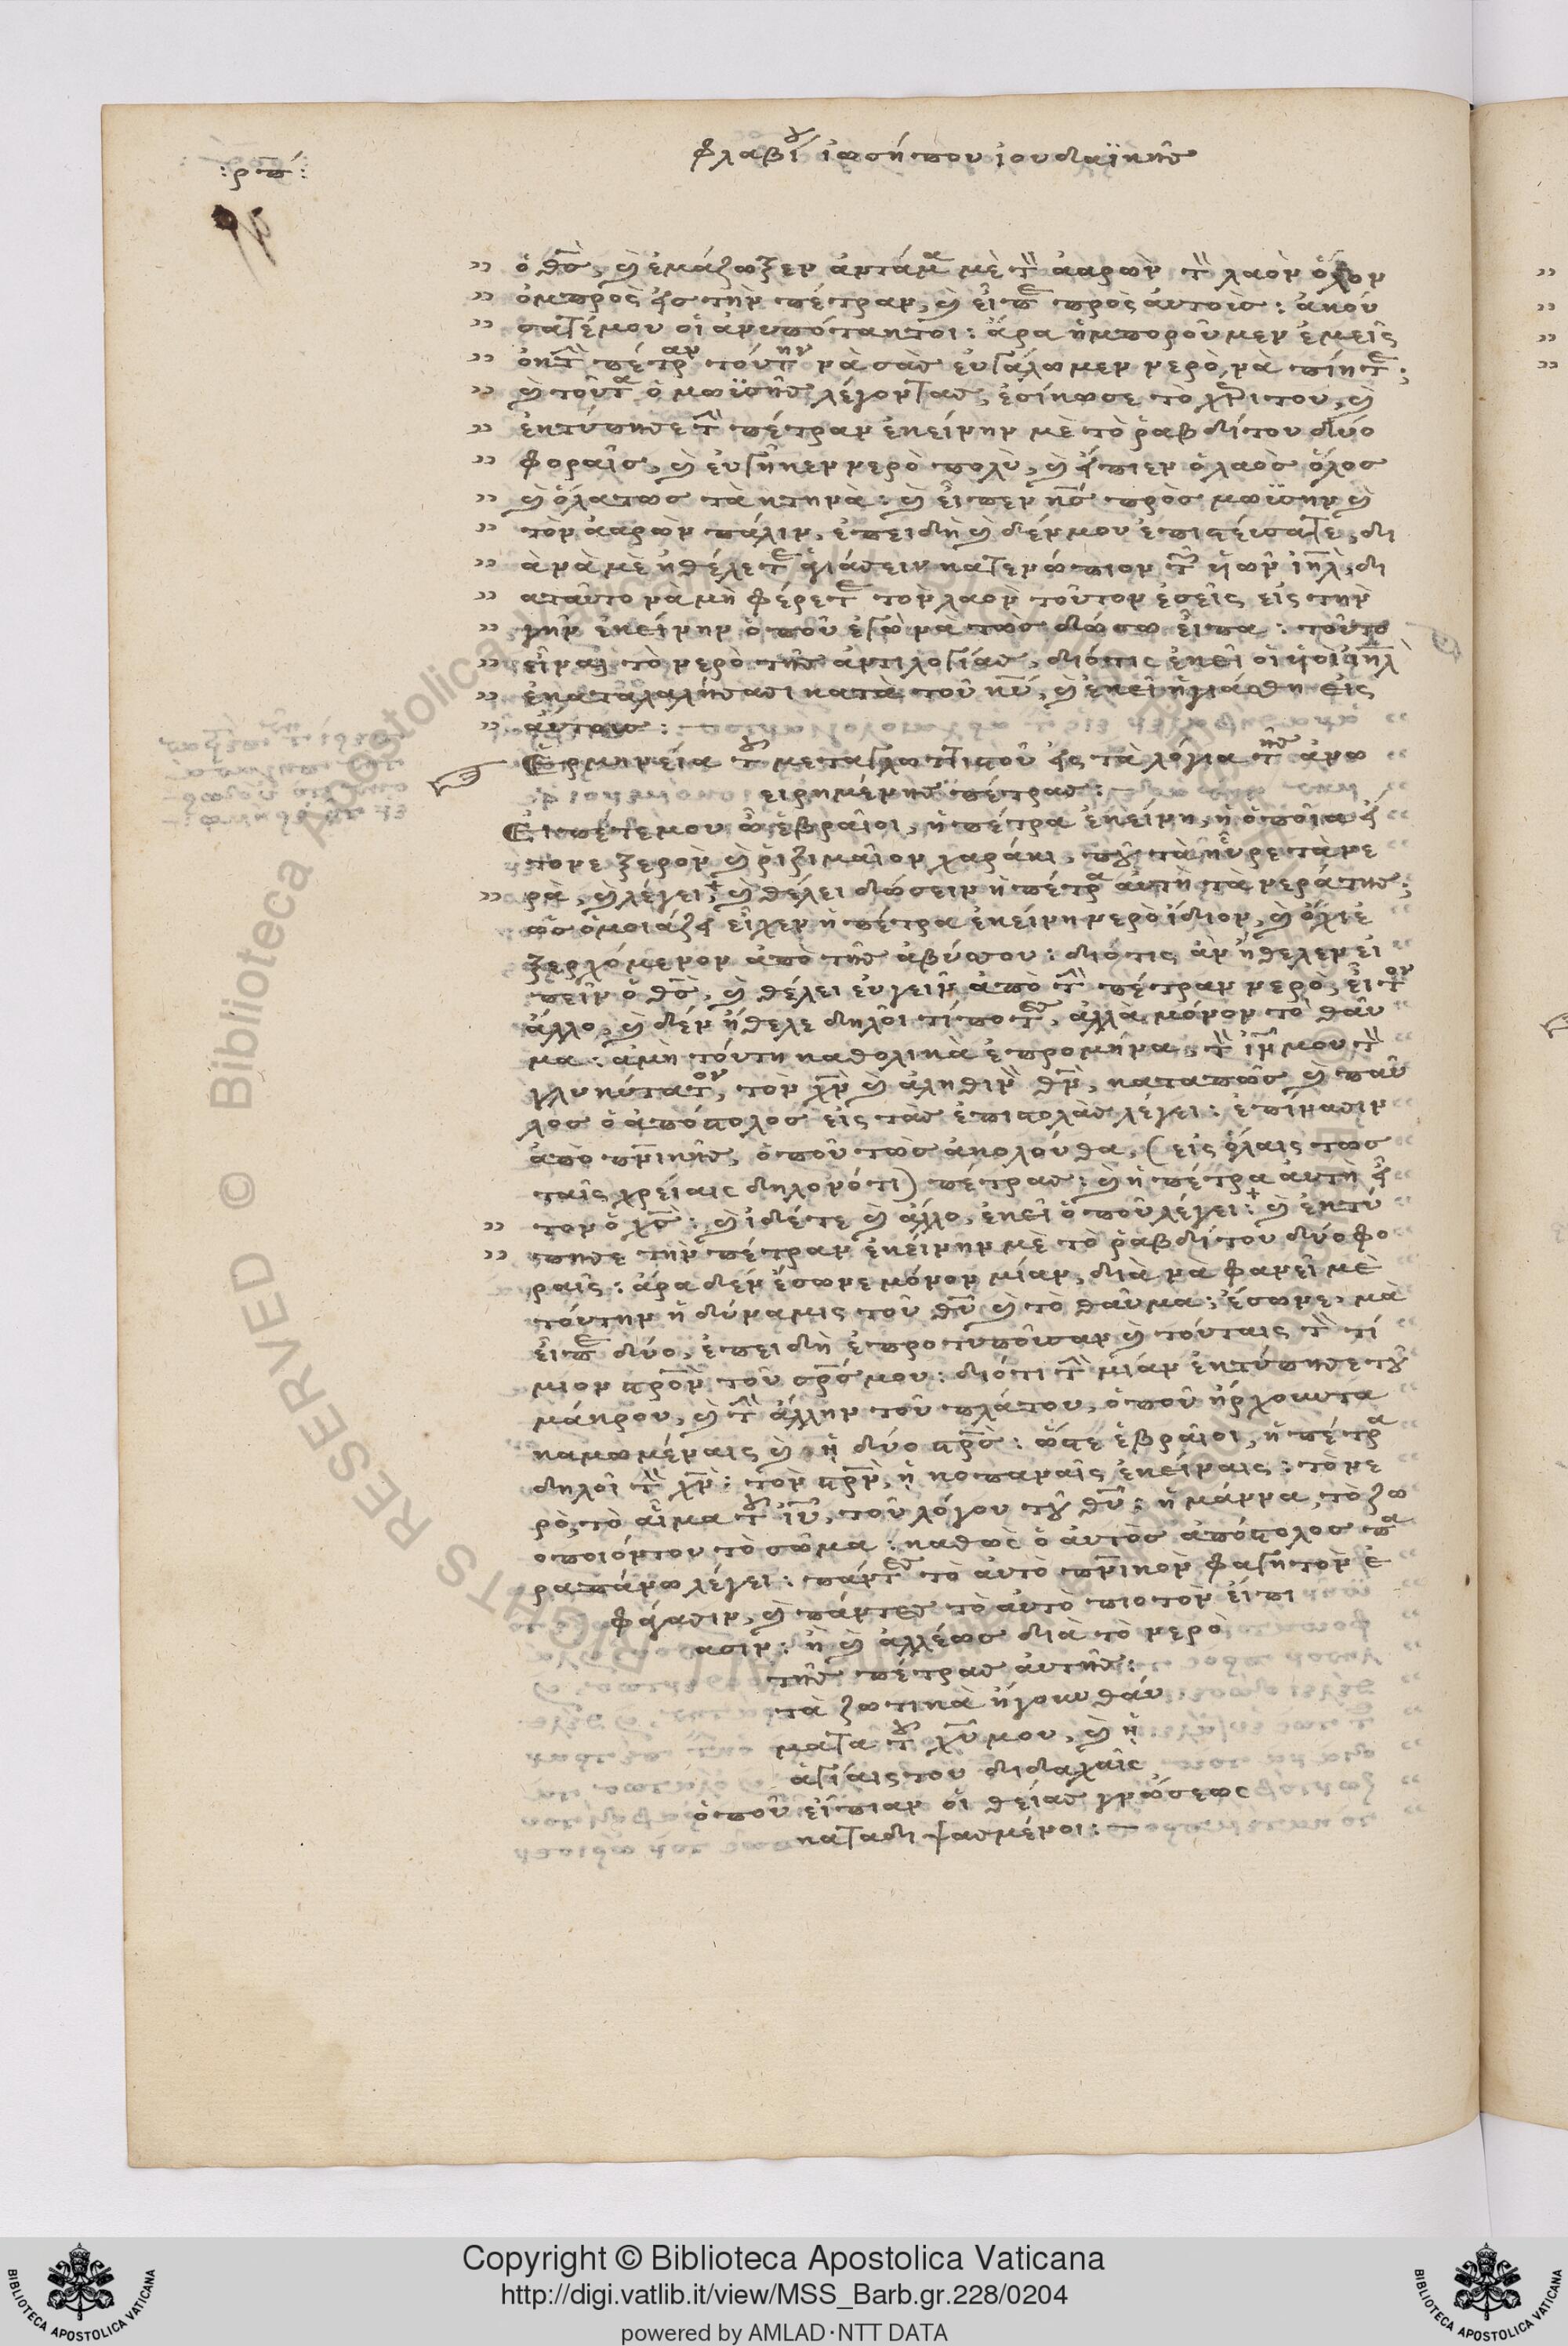 φλαβίου ἰωσήπου ἰουδαϊκῆς
:ρπ:
ὁ θς̅, καὶ ἐμάζωξεν ἀντάμα μὲ τὸν ἀαρὼν τὸν λαὸν ὅλον
ὀμπρὸς εἰς τὴν πέτραν, καὶ εἶπε πρὸς αὐτοὺς: ἀκού
σατέ μου οἱ ἀνυπότακτοι: ἄρα ἠμποροῦμεν ἐμεῖς
ἐκ τὴν πέτραν τούτην νὰ σᾶς εὐγάλωμεν νερὸ, νὰ πίητε;
καὶ τοῦτα ὁ μωϋσῆς λέγοντας, ἐσήκωσε τὸ χέρι του, καὶ
ἐκτύπησε τὴν πέτραν ἐκείνην μὲ τὸ ῥαβδί του δύο
φοραῖς, καὶ εὐγῆκεν νερὸ πολὺ, καὶ ἔπιεν ὁ λαὸς ὅλος
καὶ ὅλα τους τὰ κτηνὰ: καὶ εἶπεν κς̅ πρὸς μωϋσῆν καὶ
τὸν ἀαρὼν πάλιν, ἐπειδὴ καὶ δέν μου ἐπιστεύσατε, δι
ὰ νὰ μὲ ἠθέλετε ἁγιάσειν κατενώπιον τῶν ὑιῶν ιηλ̅, δι
αταῦτο νὰ μὴ φέρετε τὸν λαὸν τοῦτον ἐσεῖς εἰς τὴν
γῆν ἐκείνην ὁποῦ ἐγὼ νὰ τῶς δώσω εἶπα: τοῦτο
εἶναι τὸ νερὸ τῆς ἀντιλογίας, διότις ἐκεῖ οἱ ὑιοὶ ιηλ̅
ἐκαταλαλήσασι κατὰ τοῦ κυ̅, καὶ ἐκεῖ ἡγιάσθη εἰς
αὐτους:
Ἑρμηνεία τοῦ μεταγλωττιστοῦ εἰς τὰ λόγια τῆς ἄνω
εἰρημένης πέτρας:
Εἰπέτε μου ὦ ἑβραῖοι, ἡ πέτρα ἐκείνη, ἡ ὁποῖα ἦ
τονε ξερὸν καὶ ῥιζιμαῖον χαράκι, ποῦ τὰ ηὗρε τὰ νε
ρὰ, καὶ λέγει, καὶ θέλει δώσειν ἡ πέτρα αὐτὴ τὰ νερά της;
ὡς ὁμοιάζει εἶχεν ἡ πέτρα ἐκείνη νερὸ ἴδιον, καὶ ὄχι ἐ
ξερχόμενον ἀπὸ τῆς ἀβύσου: διότις ἂν ἤθελεν εἰ
πεῖν ὁ θς̅, καὶ θέλει εὐγεῖν ἀπὸ τὴν πέτραν νερὸ, εἶτον
ἄλλο, καὶ δὲν ἤθελε δηλοῖ τίποτες, ἀλλὰ μόνον τὸ θαῦ
μα: ἀμὴ τούτη καθολικὰ ἐπρομήνα, τὸν ιν̅ μου τὸν
γλυκύτατον, τὸν χν̅ καὶ ἀληθινὸν θν̅, καταπῶς καὶ παῦ
λος ὁ ἀπόστολος εἰς τὰς ἐπιστολὰς λέγει: ἐπίνασιν
ἀπὸ πν̅ικῆς, ὁποῦ τῶς ἀκολούθα, (εἰς ὅλαις τως
ταῖς χρείαις δηλονότι) πέτρας: καὶ ἡ πέτρα αὐτὴ ἦ
τον ὁ χς̅: καὶ ἰδέτε καὶ ἄλλο, ἐκεῖ ὁποῦ λέγει: καὶ ἐκτύ
πησε τὴν πέτραν ἐκείνην μὲ τὸ ῥαβδί του δύο φο
ραῖς: ἄρα δὲν ἔσωνε μόνον μίαν, διὰ να φανεῖ μὲ
τούτην ἡ δύναμις τοῦ θυ̅ καὶ τὸ θαῦμα; ἔσωνε, μὰ
εἶπε δύο, ἐπειδὴ ἐπροτυποῖσαν καὶ τούταις τὸν τί
μιον στρο̅ν τοῦ σρ̅ς μου: διότι τὴν μίαν ἐκτύπησε τοῦ
μάκρου, καὶ τὴν ἄλλην τοῦ πλάτου, ὁποῦ ἤρχουντα
καμωμέναις καὶ ἡ δύο στρς̅: ὥστε ἑβραῖοι, ἡ πέτρα
δηλοῖ τὸν χν̅: τὸν στρν̅, ἡ κοπαναῖς ἐκείναις: τὸ νε
ρὸ, τὸ αἷμα τοῦ ιυ̅, τοῦ λόγου τοῦ θυ̅: ἡ μάννα, τὸ ζω
οποιόν του τὸ σῶμα: καθὼς ὁ αὐτὸς ἀπόστολος πα
ραπάνω λέγει: πάντες τὸ αὐτὸ πν̅ικὸν φαγητὸν ἐ
φάγασιν, καὶ πάντες τὸ αὐτὸ πιοτὸν ἐίπι
ασιν: ἢ καὶ ἀλλέως διὰ τὸ νερὸ
τῆς πέτρας αὐτῆς:
τὰ ζωτικὰ ἤγουν θαύ
ματα τοῦ χυ̅ μου, καὶ ἡ
ἁγίαις του διδαχαῖς
ὁποῦ εἴπιαν οἱ θείας γνώσεως
καταδιψασμένοι:
Copyright © Biblioteca Apostolica Vaticana
http://digi.vatlib.it/view/MSS_Barb.gr.228/0204
powered by AMLAD·NTT DATA
BIBLIOTECA APOSTOLICA VATICANA
BIBLIOTECA APOSTOLICA VATICANA